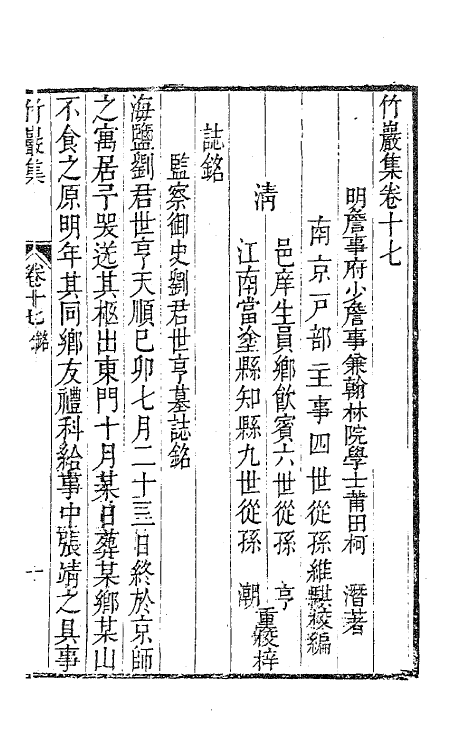 竹巖集卷十七
明詹事府少詹事兼翰林院學士莆田柯 潛著
南京戸部主事四世從孫維騏校編
清
邑庠生員鄉飲賓六世從孫 亨
江南當塗縣知縣九世從孫 潮
重校梓
誌銘
監察御史劉君世亨墓誌銘
海鹽劉君世亨天順己卯七月二十三日終於京師
之寓居予哭送其柩出東門十月某日葬某鄉某山
不食之原明年其同鄉友禮科給事中張靖之具事
竹巖集
卷十七 銘
一